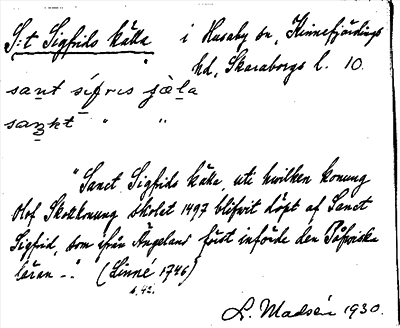 S:t Sigfrids källa i Husaby sn, Kinnefjärdings
hd, Skaraborgs l. 10.
sant sifris ɉäla
sankt " "
"Sanct Sigfrids källa, uti hwilken konung
Olof Skottkonung skolat 1497 blifwit döpt af Sanct
Sigfrid, som ifrån Ängeland först införde den Påfwiska
läran -." (Linné 1746)
s. 42.
L. Madsén 1930.